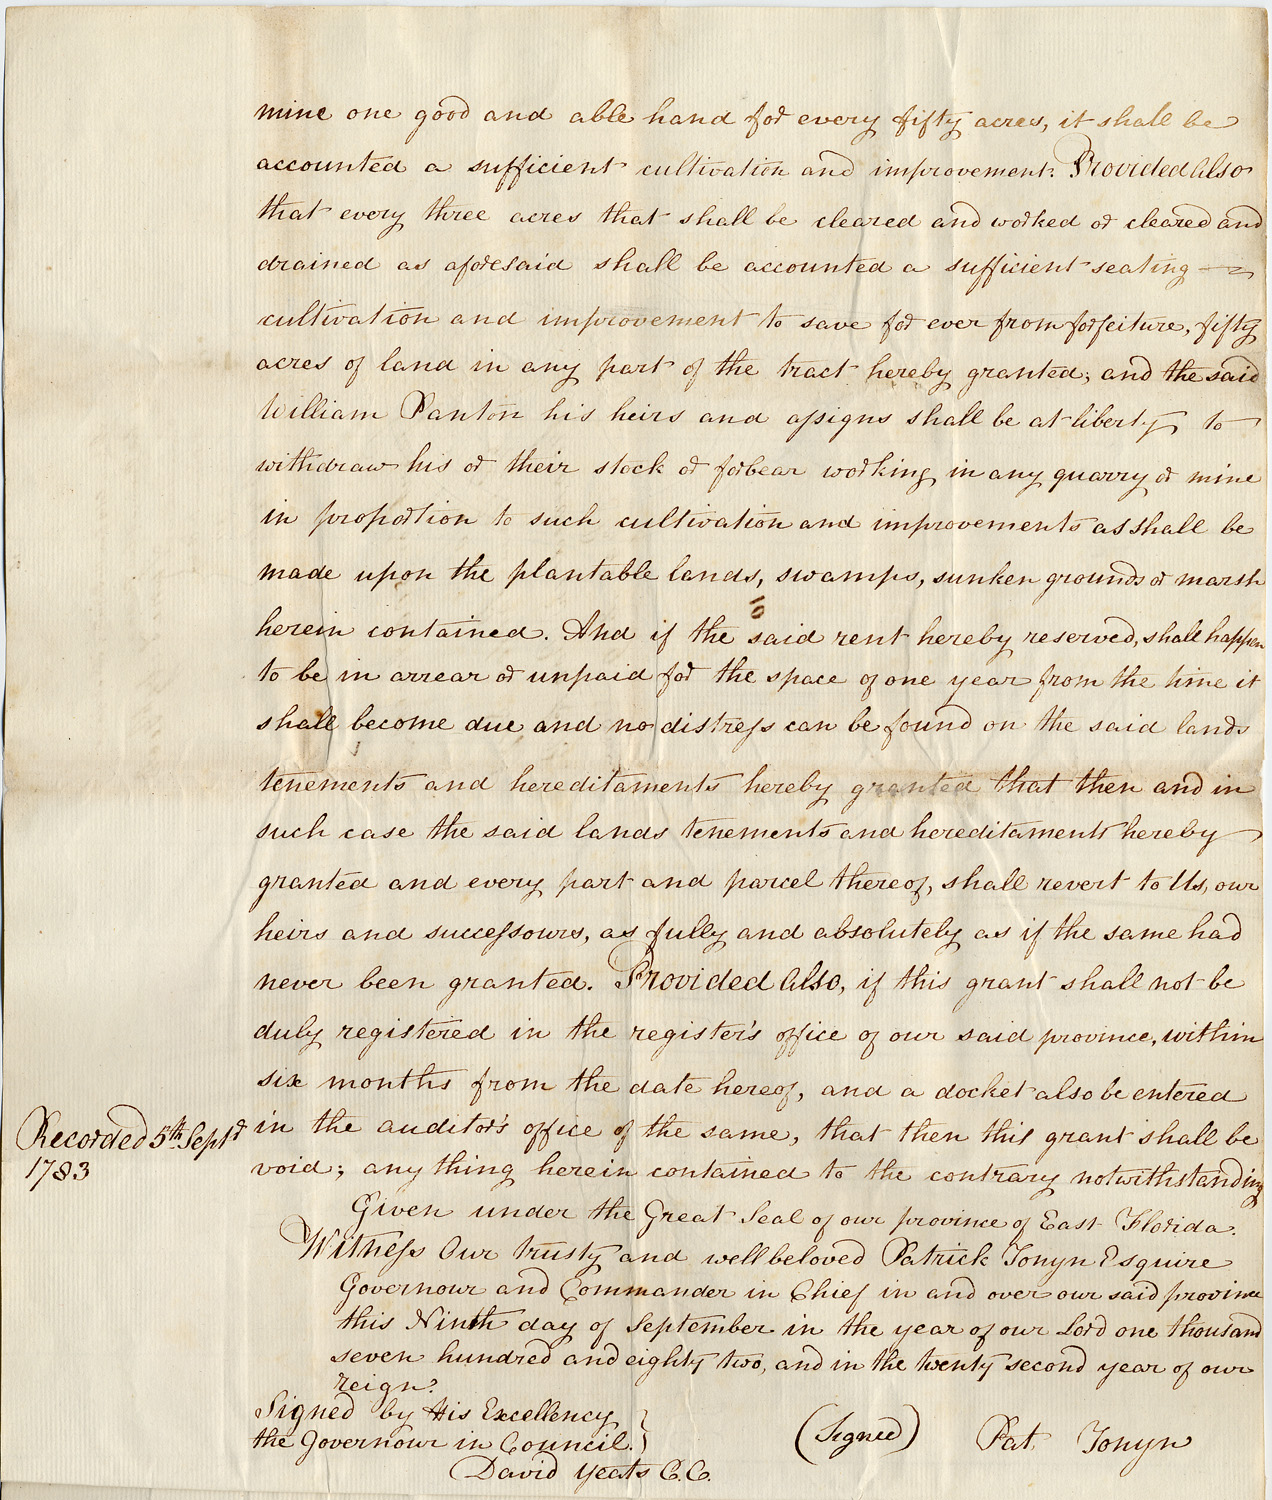 mine one good and able hand for every fifty acres, it shall be
accounted a sufficient cultivation and improvement. Provided Also
that every three acres that shall be cleared and worked or cleared and
drained as aforesaid shall be accounted a sufficient seating
cultivation and improvement to save for ever from forfeiture, fifty
acres of land in any part of the tract hereby granted; and the said
William Panton his heirs and assigns shall be at liberty to
withdraw his or their stock or forbear working in any quarry or mine
in proportion to such cultivation and improvements as shall be
made upon the plantable lands, swamps, sunken grounds or marsh
10
herein contained. And if the said rent hereby reserved, shall happen
to be in arrear or unpaid for the space of one year from the time it
shall become due and no distress can be found on the said lands
tenements and hereditaments hereby granted that then and in
such case the said lands tenements and hereditaments hereby
granted and every part and parcel thereof, shall revert to Us, our
heirs and successours, as fully and absolutely as if the same had
never been granted. Provided Also, if this grant shall not be
duly registered in the register's office of our said province, within
six months from the date hereof, and a docket also be entered
in the auditor's office of the same, that then this grant shall be
void; any thing herein contained to the contrary notwithstanding
Recorded 5th Septr
1783
Given under the Great Seal of our province of East Florida.
Witness Our trusty and well beloved Patrick Tonyn Esquire
Governour and Commander in Chief in and over our said province
this Ninth day of September in the year of our Lord one thousand
seven hundred and eighty two, and in the twenty second year of our
reign.
Signed by His Excellency
the Governour in Council. }
David Yeats C.C.
(Signed) Pat Tonyn